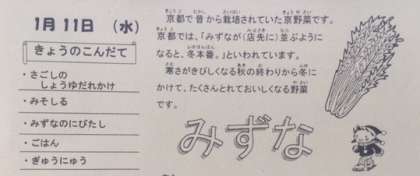 1月11日　(水)
きょうのこんだて
・さごしの
しょうゆだれかけ
・みそしる
・みずなのにびたし
・ごはん
・ぎゅうにゅう
京都で昔から栽培されていた京野菜です。
京都では、「みずなが(店先に)並ぶように
なると、冬本番。」といわれています。
寒さがきびしくなる秋の終わりから冬に
かけて、たくさんとれておいしくなる野菜
です。
みずな